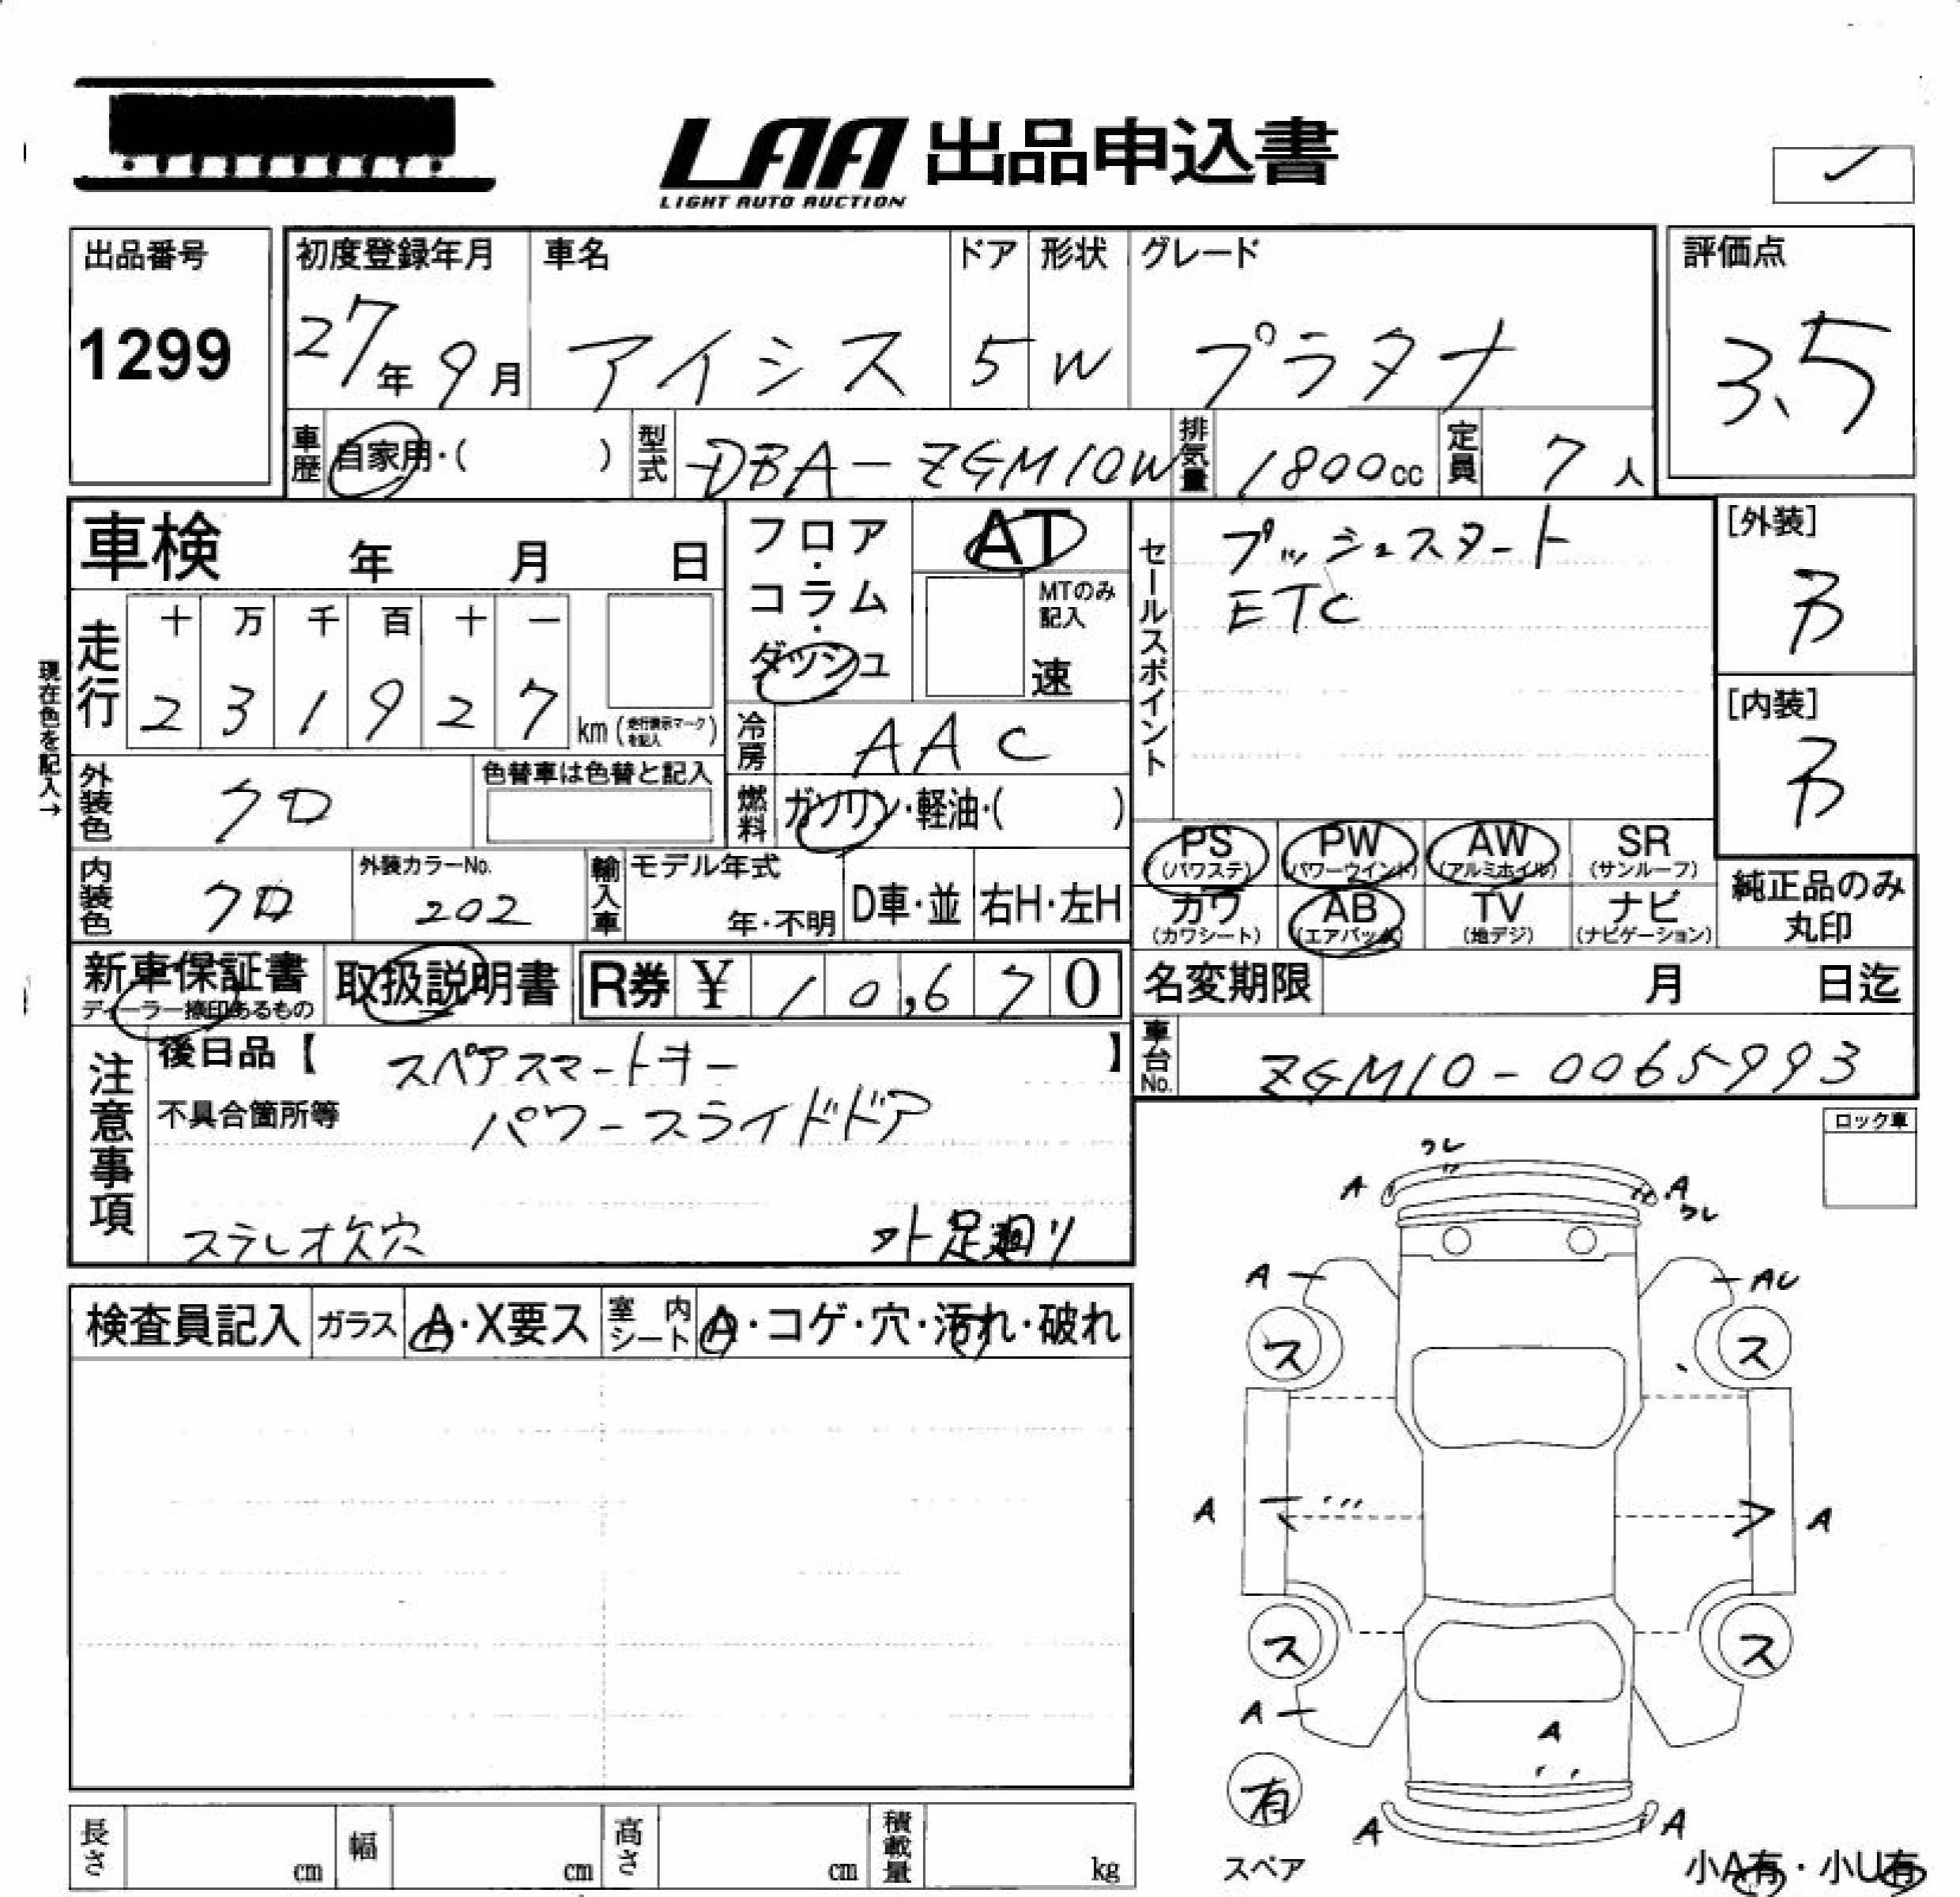 LAA 出品申込書
LIGHT AUTO AUCTION
出品番号 初度登録年月 車名 ドア 形状 グレード 評価点
1299 27年9月 アイシス 5 W プラタナ 3.5
車歴 自家用・( ) 型式 DBA-ZGM10W 排気量 1800cc 定員 7人
車検 年 月 日
フロア・コラム・ダッシュ AT
MTのみ記入 速
セールスポイント プッシュスタート
ETC
[外装] B
[内装] B
走行 十 万 千 百 十 一
2 3 1 9 2 7 km (走行表示マークを記入)
現在色を記入→
冷房 AAC
外装色 クロ 色替車は色替と記入
燃料 ガソリン・軽油・( )
PS (パワステ) PW (パワーウインド) AW (アルミホイル) SR (サンルーフ)
カワ (カワシート) AB (エアバック) TV (地デジ) ナビ (ナビゲーション)
純正品のみ丸印
内装色 クロ 外装カラーNo. 202 輸入車 モデル年式 年・不明 D車・並 右H・左H
新車保証書 ディーラー捺印あるもの 取扱説明書 R券 ¥ 10,670
名変期限 月 日迄
車台No. ZGM10-0065993
注意事項 後日品【 スペアスマートキー 】
不具合箇所等 パワースライドドア
ステレオ欠穴 アト足廻リ
ロック車
検査員記入 ガラス A・X要ス 室内シート A・コゲ・穴・汚れ・破れ
クレ
A A
クレ
A AU
ス ス
A A
ス ス
A
A
有
スペア
A A
小A有・小U有
長さ cm 幅 cm 高さ cm 積載量 kg